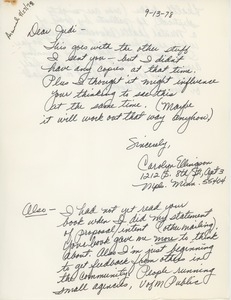 9-13-78
Dear Judi -
This goes with the other stuff
I sent you - but I didn't
have any copies at that time.
Plus I thought it might influence
your thinking to see this
at the same time. (Maybe
it will work out that way anyhow.)
Sincerely,
Carolyn
1212 S. 8th St, Apt 3
Mpls. Minn. 55404
Also - I had not yet read your
book when I did my statement
of proposal/intent (other mailing)
Your book gave me more to think
about. Also I'm just beginning
to get feedback from others in
the community: People running
small agencies, U of M Public